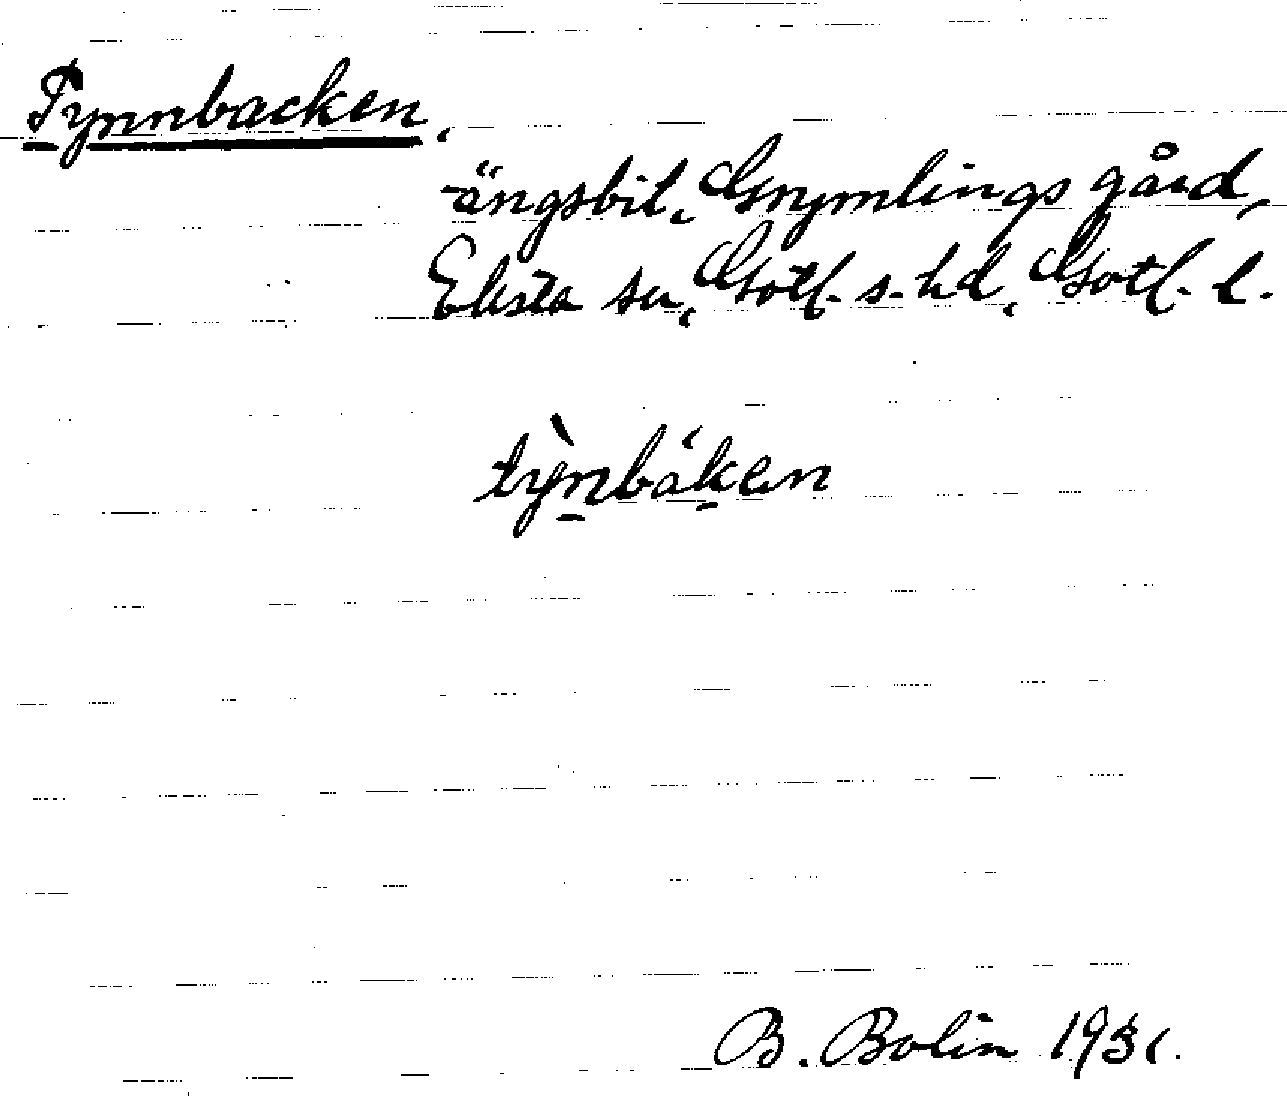 Tynnbacken,
ängsbit, Gnymlings gård,
Eksta sn, Gotl. s. hd, Gotl. l.
tỳnbáken
B. Bolin 1931.